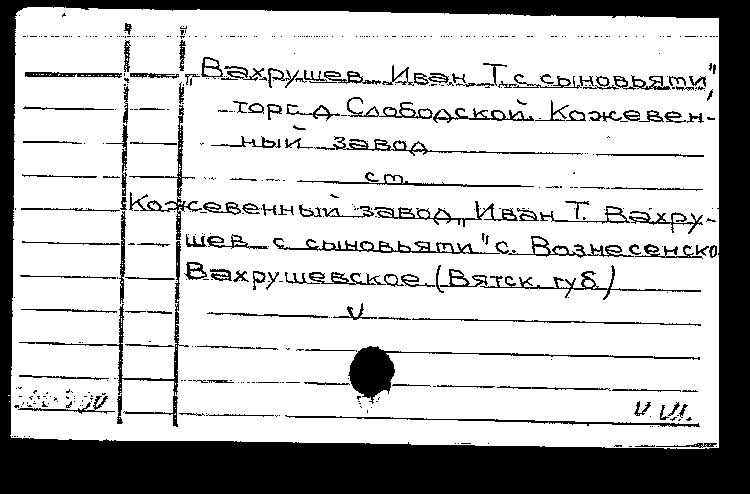 „Вахрушев Иван Т. с сыновьяти",
торг. д. Слободской. Кожевен-
ный завод
ст.
Кожевенный завод „Иван Т. Вахру-
шев с сыновьяти" с. Вознесенско
Вахрушевское. (Вятск. губ.)
V